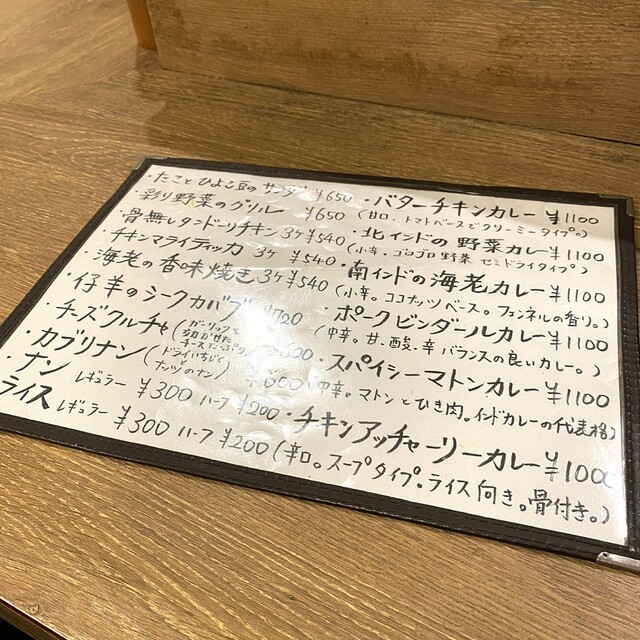 ・たことひよこ豆のサラダ ¥650
・彩り野菜のグリル ¥650
・骨無しタンドーリチキン 3ケ ¥540
・チキンマライティッカ 3ケ ¥540
・海老の香味焼き 3ケ ¥540
・仔羊のシークカバブ ¥720
・チーズクルチャ(ガーリックを
チーズたっぷり
・カブリナン(ドライいちじく
ナッツのナン) ¥600
・ナン レギュラー ¥300 ハーフ ¥200
ライス レギュラー ¥300 ハーフ ¥200
・バターチキンカレー ¥1100
(甘口、トマトベースでクリーミータイプ。)
・北インドの野菜カレー ¥1100
(小辛、ゴロゴロ野菜 セミドライタイプ)
・南インドの海老カレー ¥1100
(小辛。ココナッツベース。フェンネルの香り。)
・ポークビンダールカレー ¥1100
(中辛。甘、酸、辛 バランスの良いカレー。)
・スパイシーマトンカレー ¥1100
(中辛。マトンとひき肉。インドカレーの代表格)
・チキンアッチャーリーカレー
(辛口。スープタイプ。ライス向き。骨付き。)